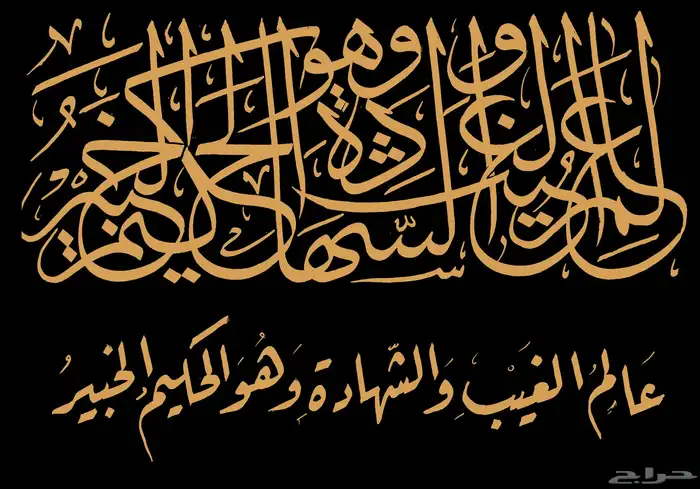 عالم الغيب والشهادة وهو الحكيم الخبير
عَالِمُ الغَيْبِ وَالشَّهادةِ وَهُوَ الحَكيمُ الخبيرُ
حراج